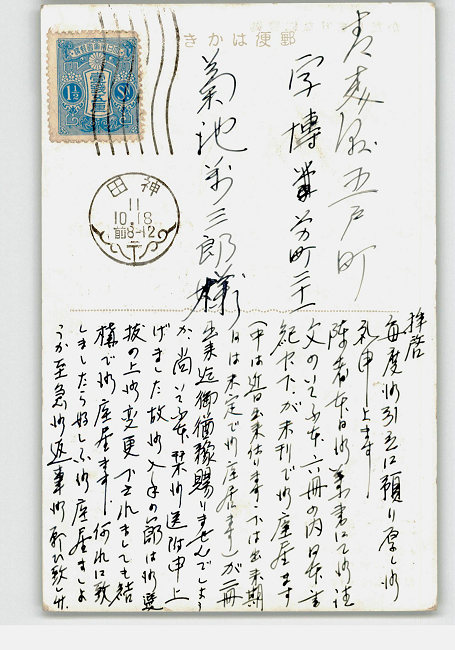 郵便はかき
1½ SN
神田
11
10.18
前8-12
五戸町
字博労町二十一
菊池万三郎様
拝啓
毎度御引立に預り厚く御
礼申上ます
陳者本日御葉書にて御注
文のいてふ本六冊の内日本
紀中下が未刊で御座居ます
(中は近日出来仕ります、下は出来期
日は未定で御座居ます)が二冊
出来迄御猶豫賜りませんでしよう
か、尚いてふ本栞御送附申上
げました故御入手の節は御
の上御変更下されましても結
構で御座居ます、何れに致
しましたら好しふ御座居ましよ
うか至急御返事御願ひ致します